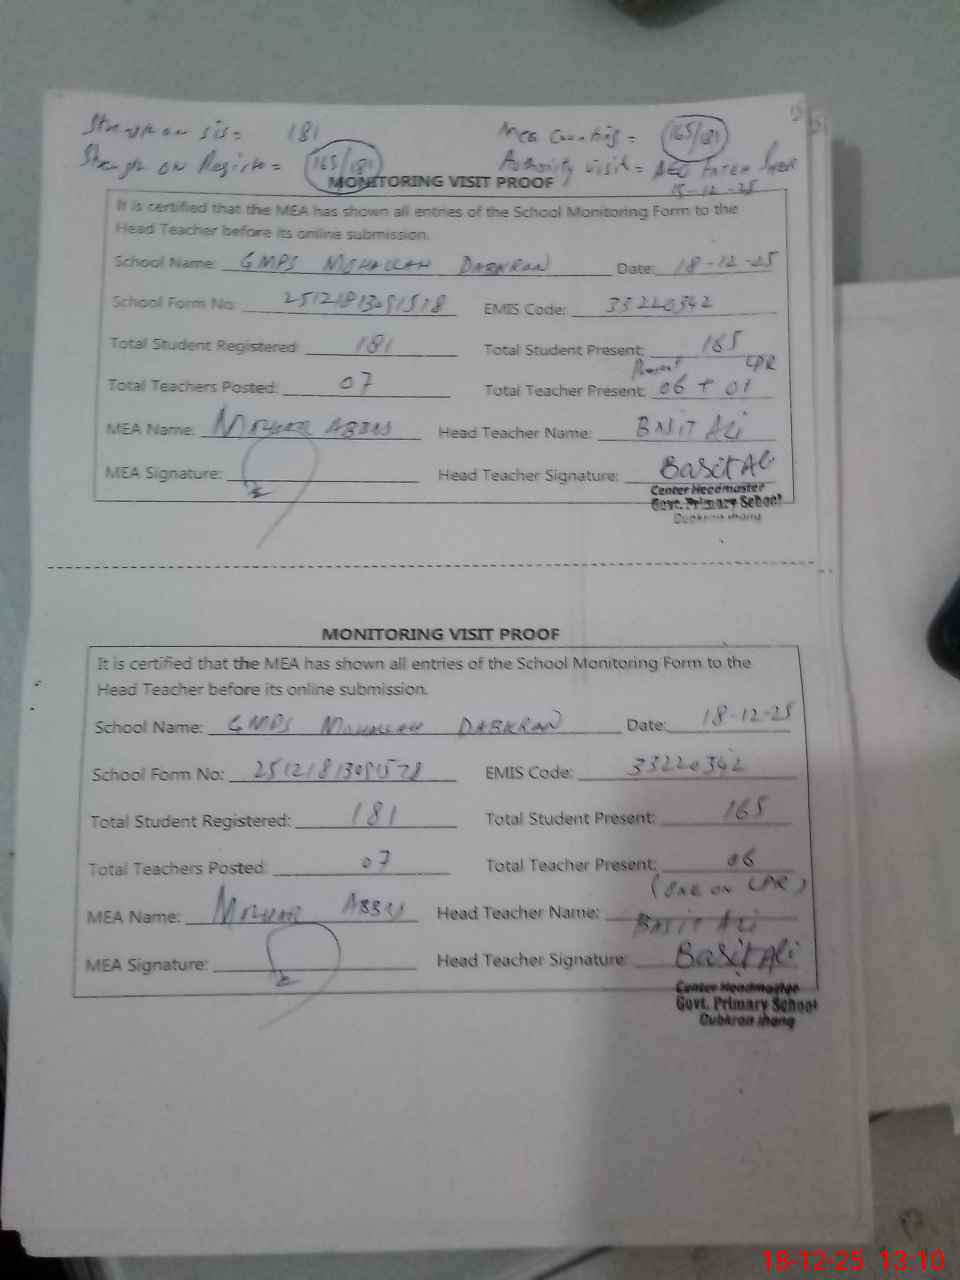 Strength on SIS = 181
Mea Counting = 165/181
Strength on Register = 165/181
Authority visit = AEO FATEH SHER
15-12-25
MONITORING VISIT PROOF
It is certified that the MEA has shown all entries of the School Monitoring Form to the
Head Teacher before its online submission.
School Name: GMPS MOHALLAH DABKRAN Date: 18-12-25
School Form No: EMIS Code: 33220342
Total Student Registered: 181 Total Student Present: 165
Present LPR
Total Teachers Posted: 07 Total Teacher Present: 06 + 01
MEA Name: ABBAS Head Teacher Name: BASIT ALI
MEA Signature: Head Teacher Signature: Basit Ali
Center Headmaster
Govt. Primary School
Dubkran Jhang
MONITORING VISIT PROOF
It is certified that the MEA has shown all entries of the School Monitoring Form to the
Head Teacher before its online submission.
School Name: GMPS MOHALLAH DABKRAN Date: 18-12-25
School Form No: EMIS Code: 33220342
Total Student Registered: 181 Total Student Present: 165
Total Teachers Posted: 07 Total Teacher Present: 06
(ONE ON LPR)
MEA Name: ABBAS Head Teacher Name: BASIT ALI
MEA Signature: Head Teacher Signature: Basit Ali
Center Headmaster
Govt. Primary School
Dubkran Jhang
18-12-25 13:10